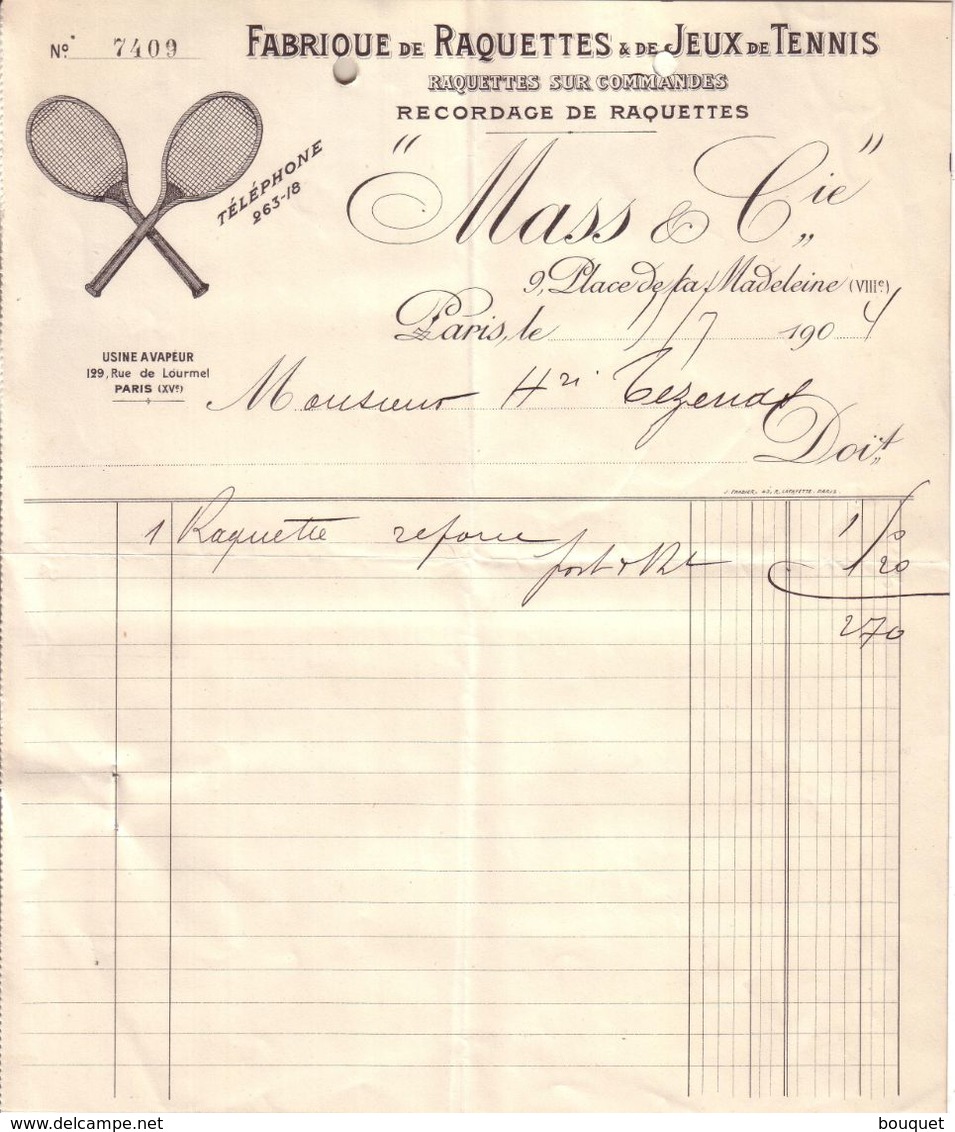 No. 7409
FABRIQUE DE RAQUETTES & DE JEUX DE TENNIS
RAQUETTES SUR COMMANDES
RECORDAGE DE RAQUETTES
"Mass & Cie"
TÉLÉPHONE
263-18
9, Place de la Madeleine (VIIIe)
Paris, le 1904
USINE A VAPEUR
129, Rue de Lourmel
PARIS (XVe)
Monsieur Hri
Doit
40, R. LAFAYETTE. PARIS.
1 Raquette 1 50
port 1 20
2 70
bouquet